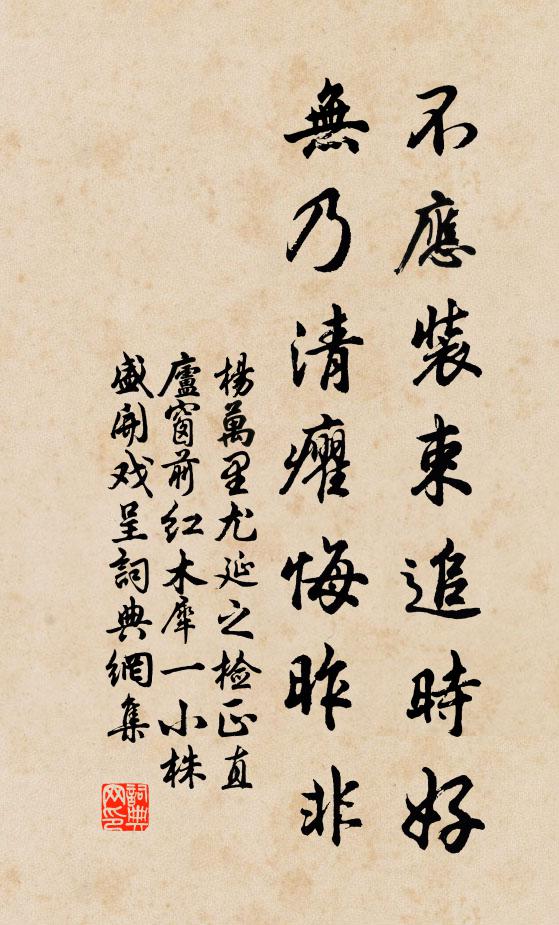 不應裝束追時好
無乃清癯悔昨非
楊萬里尤延之檢正直
廬窗前紅木犀一小株
盛開戏呈詞典網集
詞典
网印